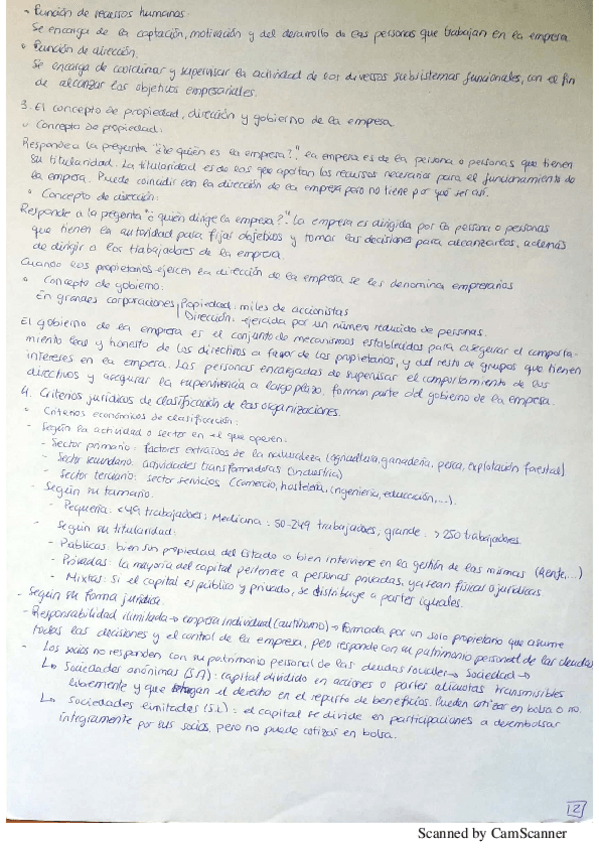 - Función de recursos humanos.
Se encarga de la captación, motivación y del desarrollo de las personas que trabajan en la empresa
• Función de dirección.
Se encarga de coordinar y supervisar la actividad de los diversos subsistemas funcionales, con el fin
de alcanzar los objetivos empresariales.
3. El concepto de propiedad, dirección y gobierno de la empresa
• Concepto de propiedad:
Responde a la pregunta "¿de quién es la empresa?". La empresa es de la persona o personas que tienen
su titularidad. La titularidad es de los que aportan los recursos necesarios para el funcionamiento de
la empresa. Puede coincidir con la dirección de la empresa pero no tiene por qué ser así.
• Concepto de dirección:
Responde a la pregunta "¿quién dirige la empresa?". La empresa es dirigida por la persona o personas
que tienen la autoridad para fijar objetivos y tomar las decisiones para alcanzarlos, además
de dirigir a los trabajadores de la empresa.
Cuando los propietarios ejercen la dirección de la empresa se les denomina empresarios
• Concepto de gobierno:
En grandes corporaciones | Propiedad: miles de accionistas
| Dirección: ejercida por un número reducido de personas.
El gobierno de la empresa es el conjunto de mecanismos establecidos para asegurar el comporta-
miento leal y honesto de los directivos a favor de los propietarios, y del resto de grupos que tienen
intereses en la empresa. Las personas encargadas de supervisar el comportamiento de los
directivos y asegurar la supervivencia a largo plazo, forman parte del gobierno de la empresa.
4. Criterios jurídicos de clasificación de las organizaciones.
• Criterios económicos de clasificación:
- Según la actividad o sector en el que operen:
- Sector primario: factores extraídos de la naturaleza (agricultura, ganadería, pesca, explotación forestal)
- Sector secundario: actividades transformadoras (industria)
- Sector terciario: sector servicios (comercio, hostelería, ingeniería, educación,...).
- Según su tamaño:
- Pequeña: <49 trabajadores; Mediana: 50-249 trabajadores, grande: >250 trabajadores.
- Según su titularidad:
- Públicas: bien son propiedad del Estado o bien interviene en la gestión de las mismas (Renfe,...)
- Privadas: la mayoría del capital pertenece a personas privadas, ya sean físicas o jurídicas.
- Mixtas: si el capital es público y privado, se distribuye a partes iguales.
- Según su forma jurídica.
- Responsabilidad ilimitada → empresa individual (autónomo) → formada por un solo propietario que asume
todas las decisiones y el control de la empresa, pero responde con su patrimonio personal de las deudas
- Los socios no responden con su patrimonio personal de las deudas sociales → Sociedad →
↳ Sociedades anónimas (S.A): capital dividido en acciones o partes alícuotas transmisibles
libremente y que otorgan el derecho en el reparto de beneficios. Pueden cotizar en bolsa o no.
↳ Sociedades limitadas (S.L): el capital se divide en participaciones a desembolsar
íntegramente por sus socios, pero no puede cotizar en bolsa.
2
Scanned by CamScanner